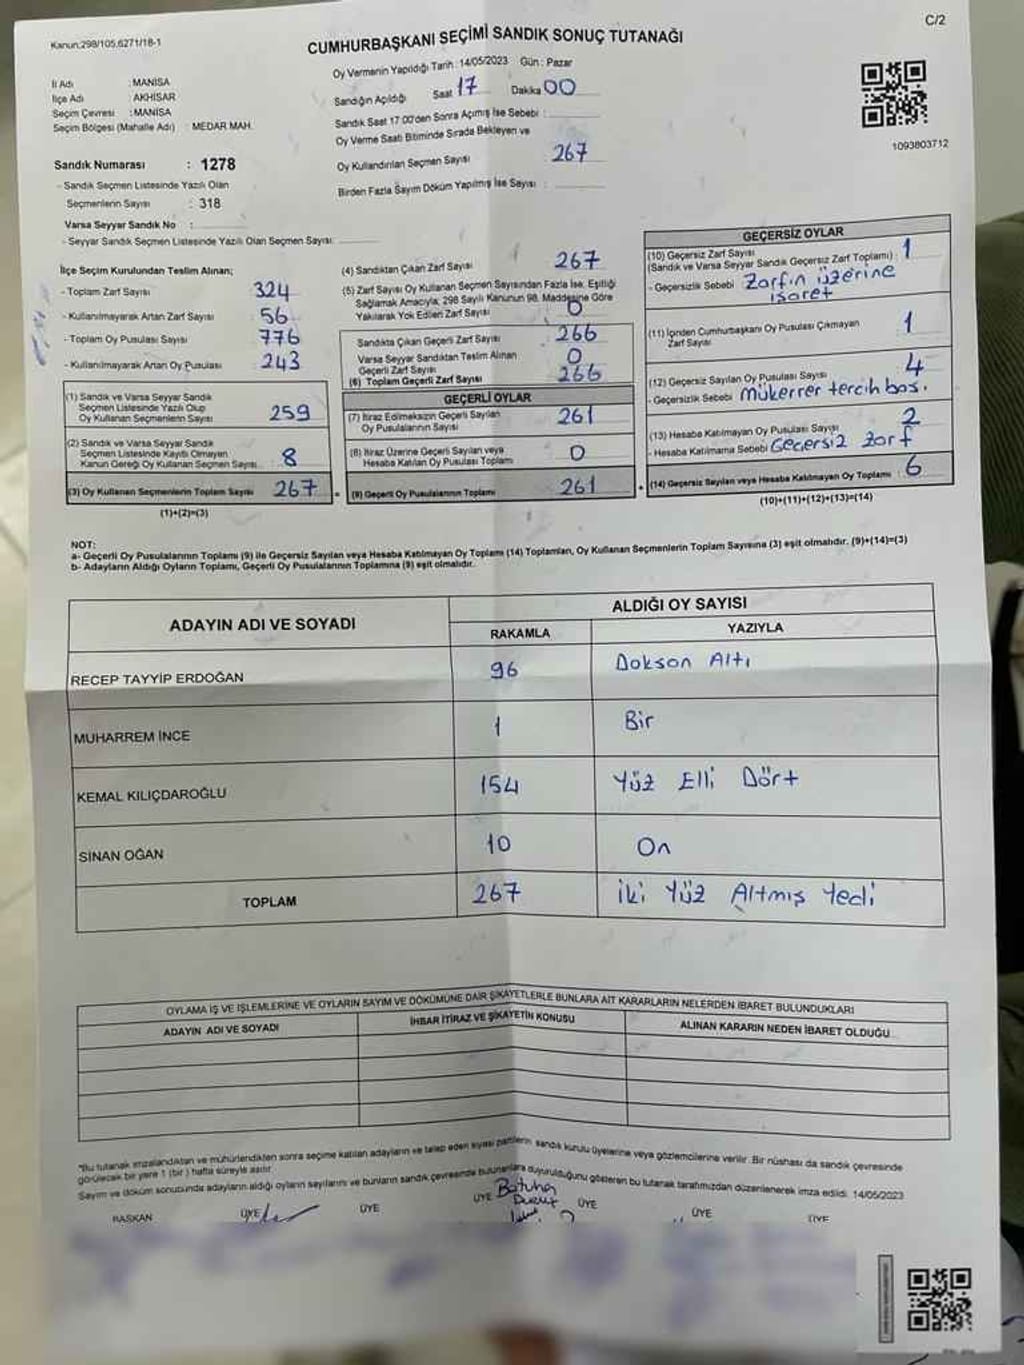 Kanun:298/105,6271/18-1
C/2
CUMHURBAŞKANI SEÇİMİ SANDIK SONUÇ TUTANAĞI
İl Adı : MANİSA
İlçe Adı : AKHİSAR
Seçim Çevresi : MANİSA
Seçim Bölgesi (Mahalle Adı) : MEDAR MAH.
Sandık Numarası : 1278
- Sandık Seçmen Listesinde Yazılı Olan
Seçmenlerin Sayısı : 318
Varsa Seyyar Sandık No :
- Seyyar Sandık Seçmen Listesinde Yazılı Olan Seçmen Sayısı:
Oy Vermenin Yapıldığı Tarih : 14/05/2023 Gün : Pazar
Sandığın Açıldığı Saat 17 Dakika 00
Sandık Saat 17:00'den Sonra Açımış İse Sebebi :
Oy Verme Saati Bitiminde Sırada Bekleyen ve
Oy Kullandırılan Seçmen Sayısı 267
Birden Fazla Sayım Döküm Yapılmış İse Sayısı :
1093803712
İlçe Seçim Kurulundan Teslim Alınan;
- Toplam Zarf Sayısı 324
- Kullanılmayarak Artan Zarf Sayısı 56
- Toplam Oy Pusulası Sayısı 776
- Kullanılmayarak Artan Oy Pusulası 243
(1) Sandık ve Varsa Seyyar Sandık
Seçmen Listesinde Yazılı Olup
Oy Kullanan Seçmenlerin Sayısı 259
(2) Sandık ve Varsa Seyyar Sandık
Seçmen Listesinde Kayıtlı Olmayan
Kanun Gereği Oy Kullanan Seçmen Sayısı 8
(3) Oy Kullanan Seçmenlerin Toplam Sayısı 267
(1)+(2)=(3)
(4) Sandıktan Çıkan Zarf Sayısı 267
(5) Zarf Sayısı Oy Kullanan Seçmen Sayısından Fazla İse, Eşitliği
Sağlamak Amacıyla; 298 Sayılı Kanunun 98. Maddesine Göre
Yakılarak Yok Edilen Zarf Sayısı 0
Sandıkta Çıkan Geçerli Zarf Sayısı 266
Varsa Seyyar Sandıktan Teslim Alınan
Geçerli Zarf Sayısı 0
(6) Toplam Geçerli Zarf Sayısı 266
GEÇERLİ OYLAR
(7) İtiraz Edilmeksizin Geçerli Sayılan
Oy Pusulalarının Sayısı 261
(8) İtiraz Üzerine Geçerli Sayılan veya
Hesaba Katılan Oy Pusulası Toplamı 0
(9) Geçerli Oy Pusulalarının Toplamı 261
GEÇERSİZ OYLAR
(10) Geçersiz Zarf Sayısı
(Sandık ve Varsa Seyyar Sandık Geçersiz Zarf Toplamı) 1
- Geçersizlik Sebebi Zarfın üzerine
işaret
(11) İçinden Cumhurbaşkanı Oy Pusulası Çıkmayan
Zarf Sayısı 1
(12) Geçersiz Sayılan Oy Pusulası Sayısı 4
- Geçersizlik Sebebi Mükerrer tercih bas.
(13) Hesaba Katılmayan Oy Pusulası Sayısı 2
- Hesaba Katılmama Sebebi Geçersiz Zarf
(14) Geçersiz Sayılan veya Hesaba Katılmayan Oy Toplamı 6
(10)+(11)+(12)+(13)=(14)
NOT:
a- Geçerli Oy Pusulalarının Toplamı (9) ile Geçersiz Sayılan veya Hesaba Katılmayan Oy Toplamı (14) Toplamları, Oy Kullanan Seçmenlerin Toplam Sayısına (3) eşit olmalıdır. (9)+(14)=(3)
b- Adayların Aldığı Oyların Toplamı, Geçerli Oy Pusulalarının Toplamına (9) eşit olmalıdır.
ADAYIN ADI VE SOYADI
ALDIĞI OY SAYISI
RAKAMLA YAZIYLA
RECEP TAYYİP ERDOĞAN 96 Dokson Altı
MUHARREM İNCE 1 Bir
KEMAL KILIÇDAROĞLU 154 Yüz Elli Dört
SİNAN OĞAN 10 On
TOPLAM 267 İki Yüz Altmış Yedi
OYLAMA İŞ VE İŞLEMLERİNE VE OYLARIN SAYIM VE DÖKÜMÜNE DAİR ŞİKAYETLERLE BUNLARA AİT KARARLARIN NELERDEN İBARET BULUNDUKLARI
ADAYIN ADI VE SOYADI İHBAR İTİRAZ VE ŞİKAYETİN KONUSU ALINAN KARARIN NEDEN İBARET OLDUĞU
*Bu tutanak imzalandıktan ve mühürlendikten sonra seçime katılan adayların ve talep eden siyasi partilerin sandık kurulu üyelerine veya gözlemcilerine verilir. Bir nüshası da sandık çevresinde
görülecek bir yere 1 (bir) hafta süreyle asılır.
Sayım ve döküm sonucunda adayların aldığı oyların sayılarını ve bunların sandık çevresinde bulunanlara duyurulduğunu gösteren bu tutanak tarafımızdan düzenlenerek imza edildi. 14/05/2023
BAŞKAN ÜYE ÜYE ÜYE ÜYE ÜYE ÜYE